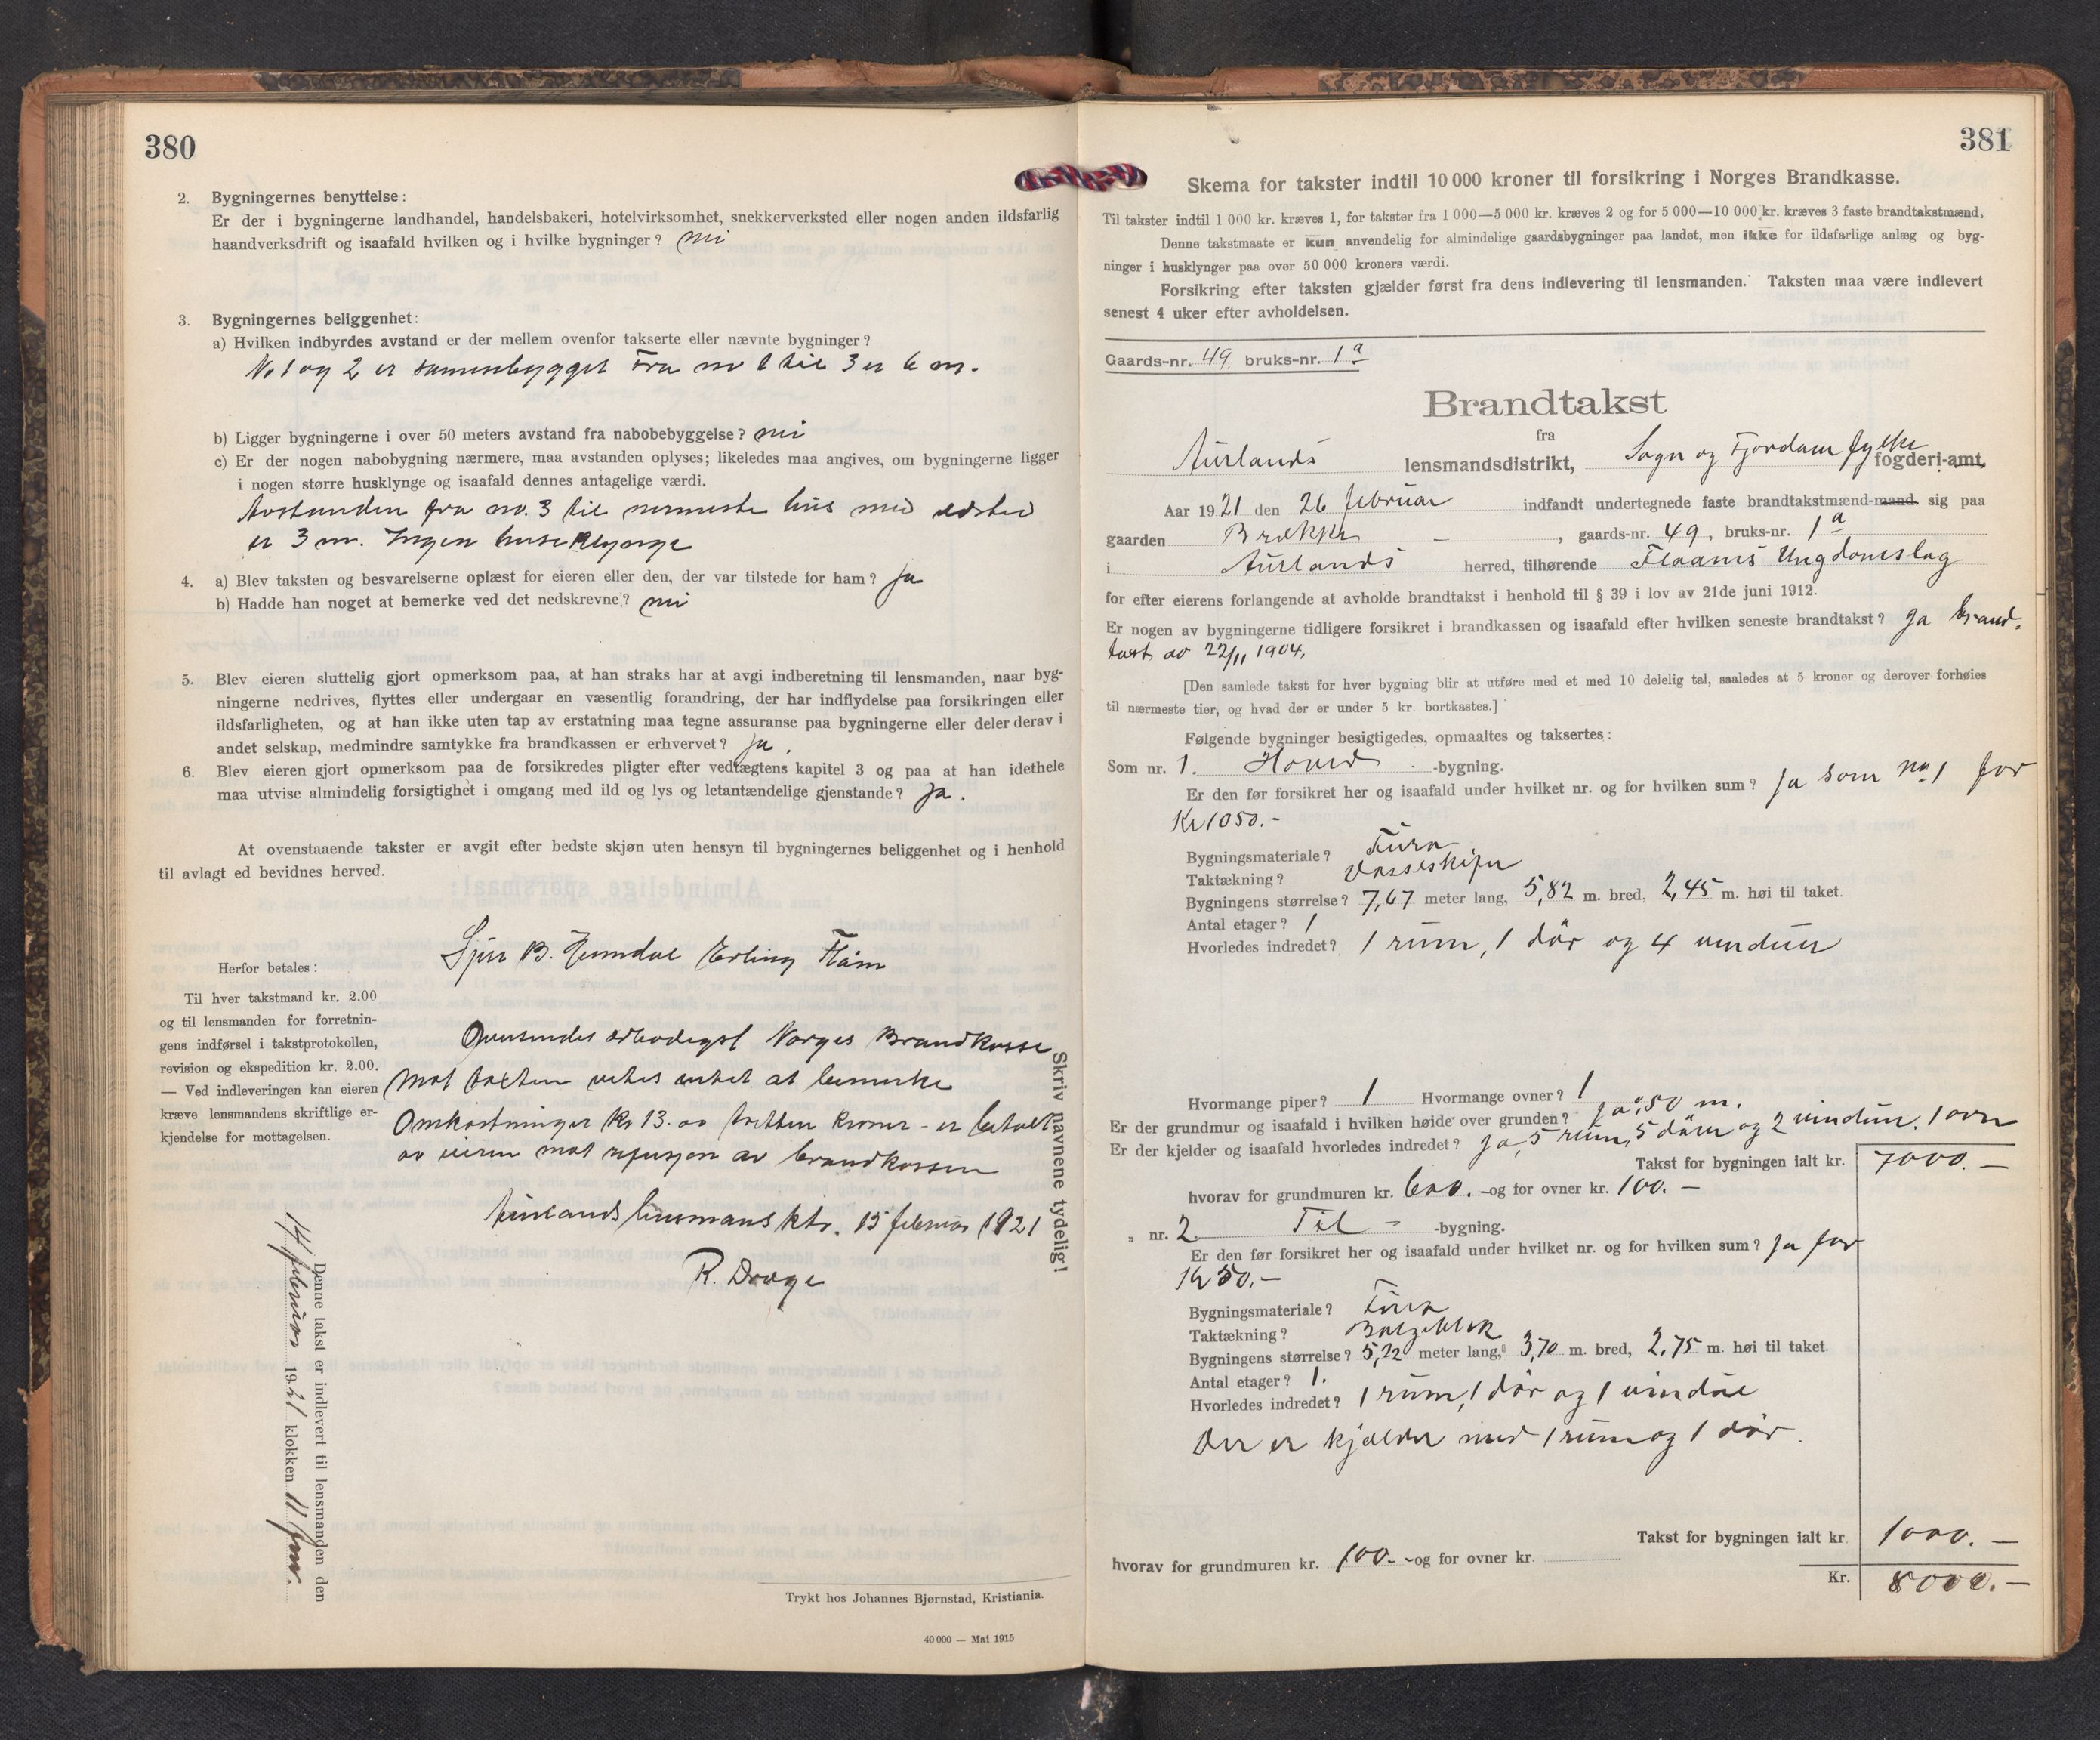 380
2. Bygningernes benyttelse:
Er der i bygningerne landhandel, handelsbakeri, hotelvirksomhet, snekkerverksted eller nogen anden ildsfarlig
haandverksdrift og isaafald hvilken og i hvilke bygninger? nei
3. Bygningernes beliggenhet:
a) Hvilken indbyrdes avstand er der mellem ovenfor takserte eller nævnte bygninger?
No 1 og 2 er sammenbygget Fra nr 1 til 3 er 6 m.
b) Ligger bygningerne i over 50 meters avstand fra nabobebyggelse? nei
c) Er der nogen nabobygning nærmere, maa avstanden oplyses; likeledes maa angives, om bygningerne ligger
i nogen større husklynge og isaafald dennes antagelige værdi.
Avstanden fra no. 3 til nærmeste hus med ildsted
er 3 m. Ingen huseklynge
4. a) Blev taksten og besvarelserne oplæst for eieren eller den, der var tilstede for ham? Ja
b) Hadde han noget at bemerke ved det nedskrevne? nei
5. Blev eieren sluttelig gjort opmerksom paa, at han straks har at avgi indberetning til lensmanden, naar byg-
ningerne nedrives, flyttes eller undergaar en væsentlig forandring, der har indflydelse paa forsikringen eller
ildsfarligheten, og at han ikke uten tap av erstatning maa tegne assuranse paa bygningerne eller deler derav i
andet selskap, medmindre samtykke fra brandkassen er erhvervet? Ja.
6. Blev eieren gjort opmerksom paa de forsikredes pligter efter vedtægtens kapitel 3 og paa at han idethele
maa utvise almindelig forsigtighet i omgang med ild og lys og letantændelige gjenstande? Ja.
At ovenstaaende takster er avgit efter bedste skjøn uten hensyn til bygningernes beliggenhet og i henhold
til avlagt ed bevidnes herved.
Sjur B. Hemdal Erling Flåm
Herfor betales:
Til hver takstmand kr. 2.00
og til lensmanden for forretnin-
gens indførsel i takstprotokollen,
revision og ekspedition kr. 2.00.
— Ved indleveringen kan eieren
kræve lensmandens skriftlige er-
kjendelse for mottagelsen.
Oversendes ærbødigst Norges Brandkasse
Mot taxten vites intet at bemerke
Omkostninger kr 13.00 tretten kroner - er betalt
av eieren mot refusjon av brandkassen
Aurlands lensmansktr. 15 februar 1921
R. Dræge
Skriv navnene tydelig!
Denne takst er indlevert til lensmanden den
14 februar 1921 klokken 11 fm.
Trykt hos Johannes Bjørnstad, Kristiania.
40 000 — Mai 1915
381
Skema for takster indtil 10 000 kroner til forsikring i Norges Brandkasse.
Til takster indtil 1 000 kr. kræves 1, for takster fra 1 000—5 000 kr. kræves 2 og for 5 000—10 000 kr. kræves 3 faste brandtakstmænd.
Denne takstmaate er kun anvendelig for almindelige gaardsbygninger paa landet, men ikke for ildsfarlige anlæg og byg-
ninger i husklynger paa over 50 000 kroners værdi.
Forsikring efter taksten gjælder først fra dens indlevering til lensmanden. Taksten maa være indlevert
senest 4 uker efter avholdelsen.
Gaards-nr. 49 bruks-nr. 1a
Brandtakst
fra
Aurlands lensmandsdistrikt, Sogn og Fjordane fylke fogderi-amt.
Aar 1921 den 26 februar indfandt undertegnede faste brandtakstmænd-mand sig paa
gaarden Brekke - , gaards-nr. 49, bruks-nr. 1a
i Aurlands herred, tilhørende Flaams Ungdomslag
for efter eierens forlangende at avholde brandtakst i henhold til § 39 i lov av 21de juni 1912.
Er nogen av bygningerne tidligere forsikret i brandkassen og isaafald efter hvilken seneste brandtakst? Ja brand-
taxt av 22/11 1904.
[Den samlede takst for hver bygning blir at utføre med et med 10 delelig tal, saaledes at 5 kroner og derover forhøies
til nærmeste tier, og hvad der er under 5 kr. bortkastes.]
Følgende bygninger besigtigedes, opmaaltes og taksertes:
Som nr. 1. Hoved -bygning.
Er den før forsikret her og isaafald under hvilket nr. og for hvilken sum? Ja som no 1 for
Kr 1050.-
Bygningsmateriale? Furu
Taktækning? Vosseskifer
Bygningens størrelse? 7,67 meter lang, 5,82 m. bred, 2,45 m. høi til taket.
Antal etager? 1
Hvorledes indredet? 1 rum, 1 dör og 4 vinduer
Hvormange piper? 1 Hvormange ovner? 1
Er der grundmur og isaafald i hvilken høide over grunden? Ja 0,50 m.
Er der kjelder og isaafald hvorledes indredet? Ja, 5 rum, 5 dörer og 2 vinduer. 1 ovn
Takst for bygningen ialt kr. 7000.-
hvorav for grundmuren kr. 600.- og for ovner kr. 100.-
„ nr. 2. Til - -bygning.
Er den før forsikret her og isaafald under hvilket nr. og for hvilken sum? Ja for
Kr 50.-
Bygningsmateriale? Furu
Taktækning? Bølgeblik
Bygningens størrelse? 5,22 meter lang, 3,70 m. bred, 2,75 m. høi til taket.
Antal etager? 1.
Hvorledes indredet? 1 rum, 1 dör og 1 vindue
Der er kjælder med 1 rum og 1 dör.
Takst for bygningen ialt kr. 1000.-
hvorav for grundmuren kr. 100.- og for ovner kr.
Kr. 8000.-